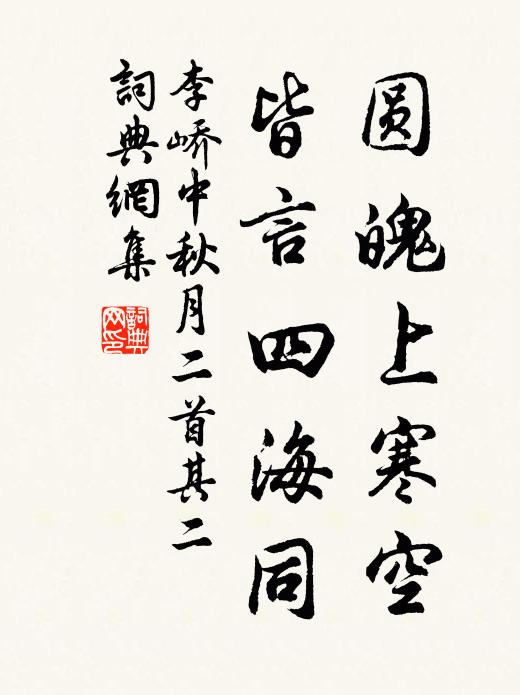 圆魄上寒空
皆言四海同
李嶠中秋月二首其二
詞典網集
詞典
网印